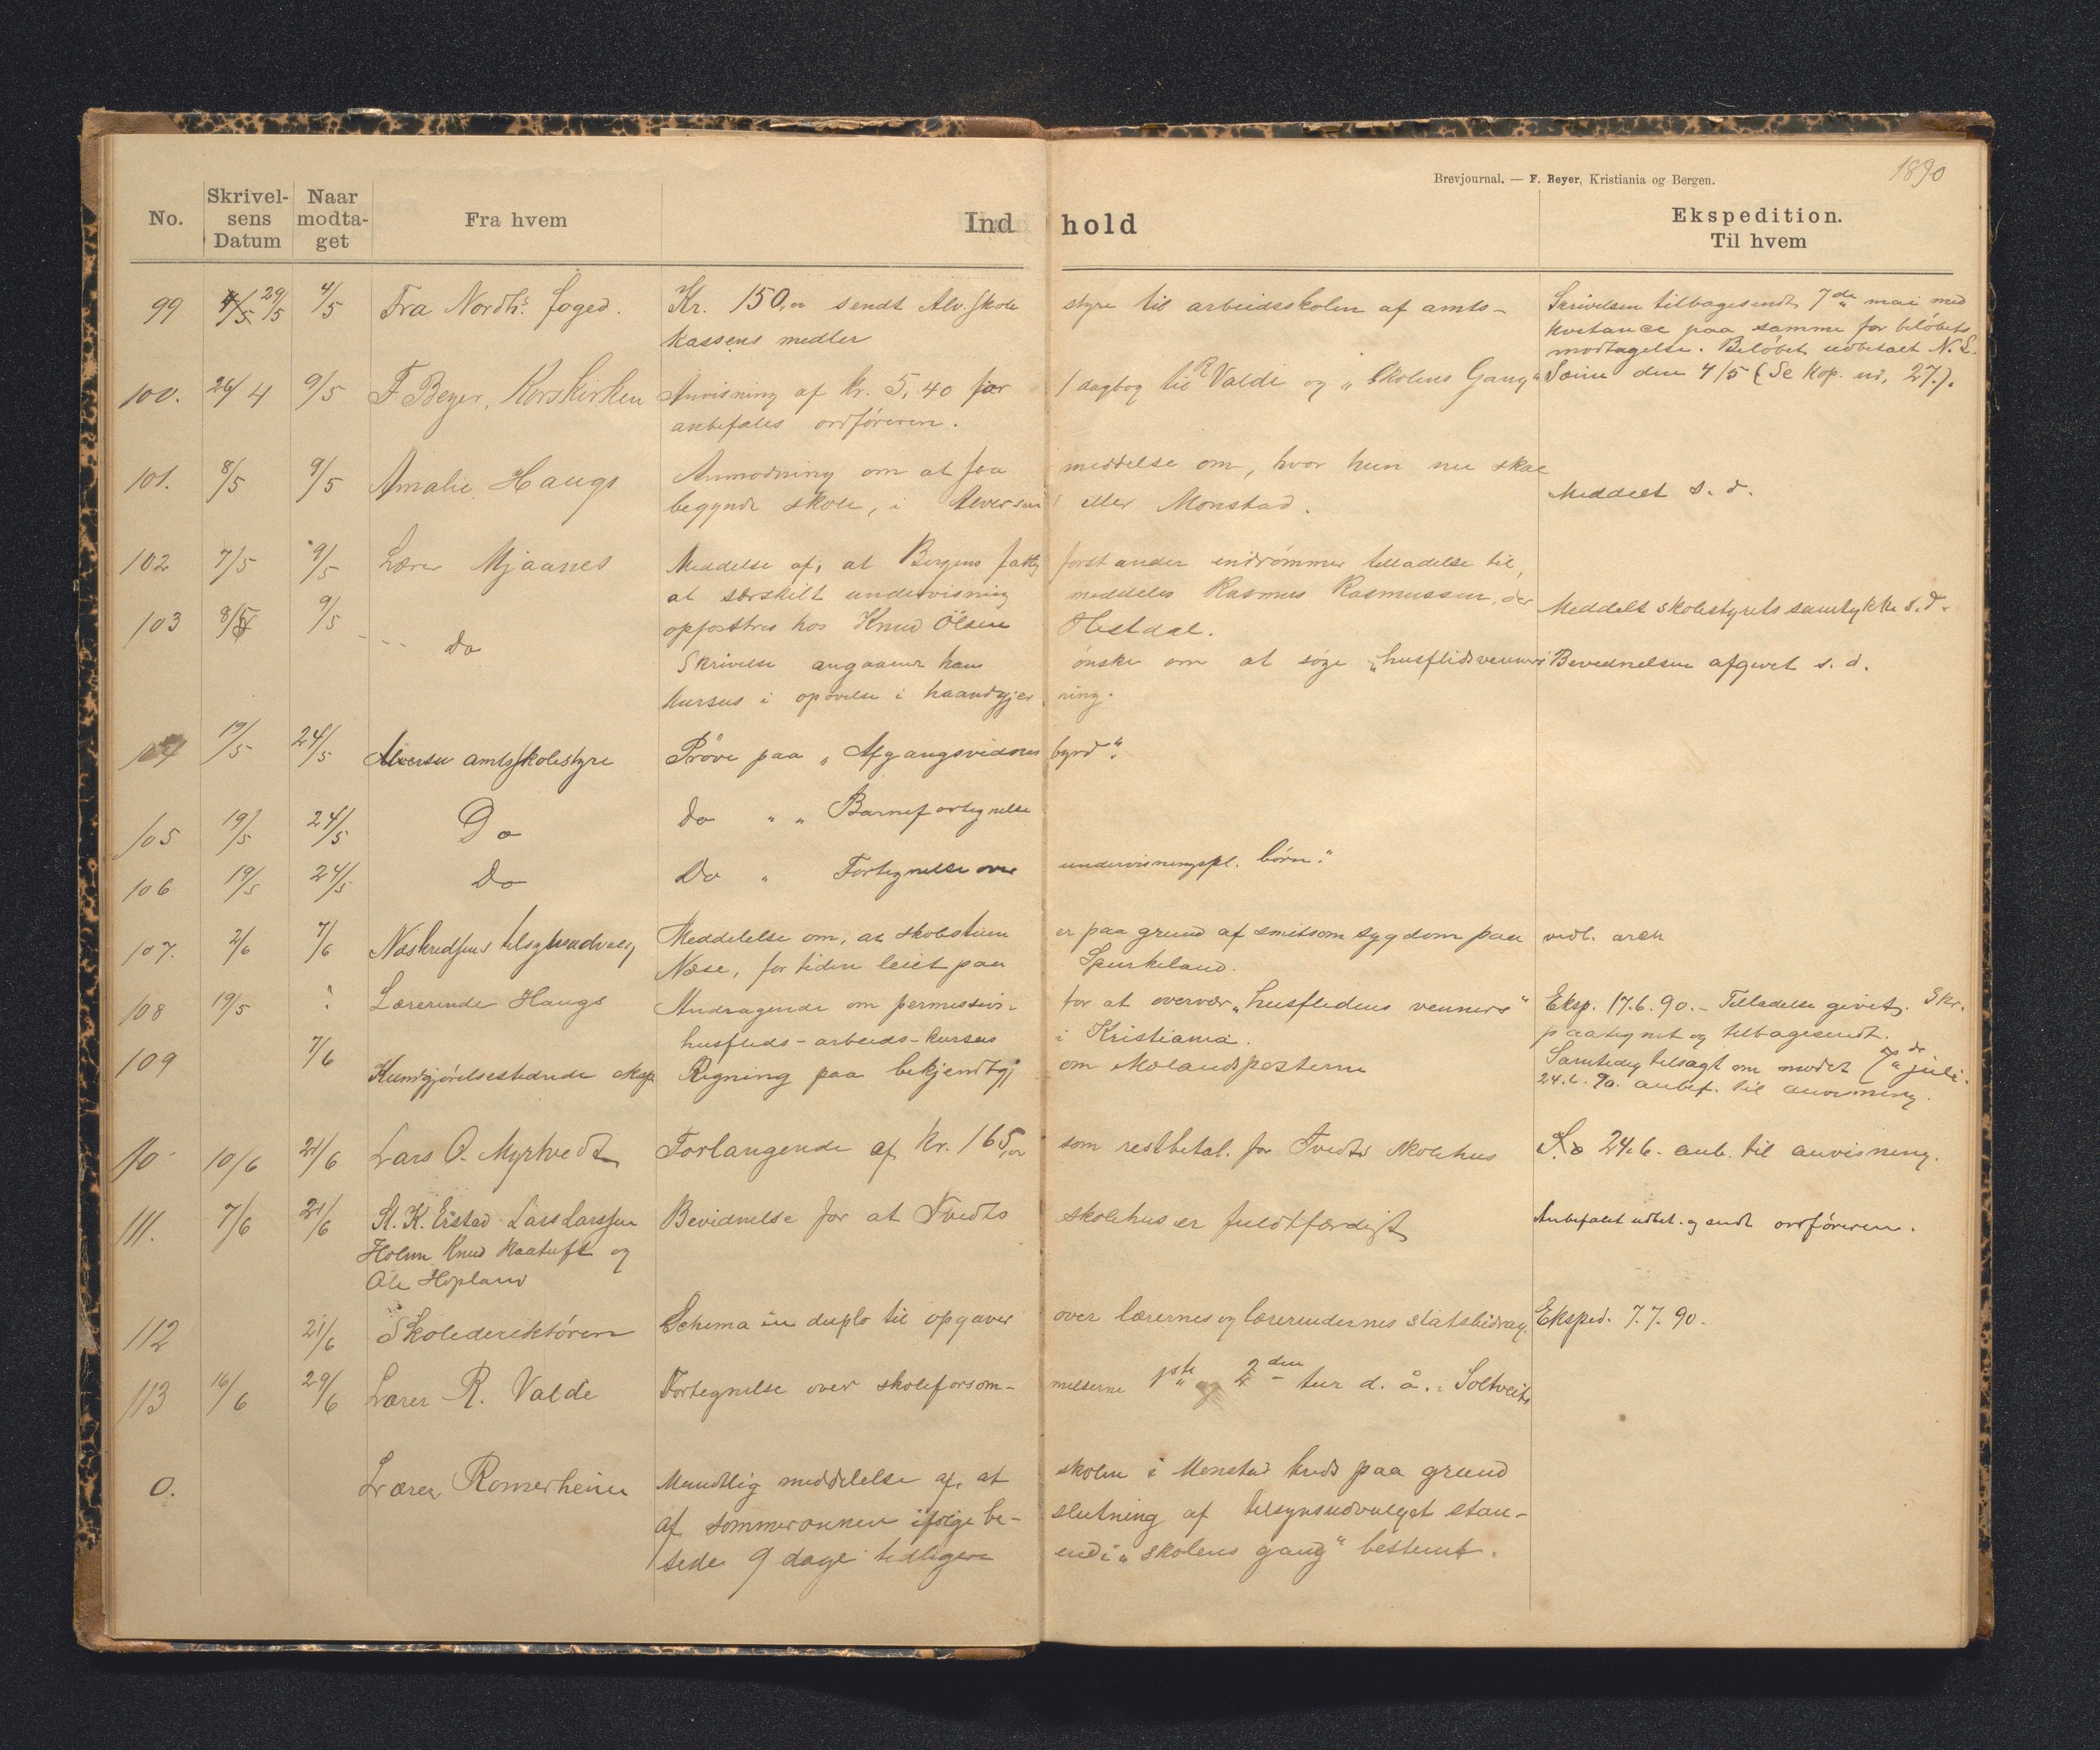 Brevjournal. — F. Beyer, Kristiania og Bergen.
1890
No.
Skrivelsens Datum
Naar modtaget
Fra hvem
Ind hold
Ekspedition.
Til hvem
99 4/5 29/5 4/5 Fra Nordh: foged. Kr. 150,00 sendt Alv. skole styre til arbeidsskolen af amts- Skrivelsen tilbagesendt 7de mai med
kassens medler kvitance paa samme for beløbets
modtagelse. Beløbet udbetalt N. S.
100. 26/4 9/5 F Beyer, Korskirken Anvisning af kr. 5,40 for 1 dagbog til R Valde og „Skolens Gang" Seim den 4/5 (Se kop. nr. 27.).
anbefales ordføreren.
101. 8/5 9/5 Amalie Haugs Anmodning om at faa meddelse om, hvor hun nu skal
begynde skole, i Alversund eller Monstad. Meddelt s. d.
102 7/5 9/5 Lærer Mjaanes Meddelse af, at Bergens fattig forstander indrømmer tilladelse til,
at særskilt undervisning meddeles Rasmus Rasmussen, der Meddelt skolestyrets samtykke s. d.
103 8/5 9/5 do opfostres hos Knud Olsen Hestdal.
Skrivelse angaaende hans ønske om at søge „husflidsvenners Bevidnelsen afgivet s. d.
kursus i opøvelse i haandgjer ning.
104 19/5 24/5 Alversu amtsskolestyre Prøve paa „Afgangsvidnes byrd".
105 19/5 24/5 Do do " " Barnefortegnelse
106 19/5 24/5 Do Do " Fortegnelse over undervisningspl. børn."
107. 2/6 7/6 Næskredsens tilsynsudvalg Meddelelse om, at skolestuen er paa grund af smitsom sygdom paa vedl. arch
Næse, for tiden leiet paa Spurkeland.
108 19/5 Lærerinde Haugs Andragende om permission for at overvær „husflidens venners" Eksp. 17.6.90. - Tilladelse givet. Skr.
husflids-arbeids-kursus i Kristiania. paategnet og tilbagesendt.
109 7/6 Kundgjørelsestidende eksp. Regning paa bekjendtgj om Molandsposterne Samtidig tilsagt om mødet 7de juli.
24.6.90. anbef. til anvisning.
10 10/6 21/6 Lars O. Myrtvedt Forlangende af kr. 165,00 som restbetal. for Tvedts skolehus S.D 24.6. anb. til anvisning.
111. 7/6 21/6 St. K. Eistad Lars Larssen Bevidnelse for at Tvedts skolehus er fuldtfærdigt Anbefalet udbet. og sendt ordføreren.
Holme Knud Kaatuft og
Ole Hopland
112 21/6 Skoledirektøren Schema in duplo til opgaver over lærernes og lærerindernes statsbidrag. Eksped. 7.7.90.
113 16/6 29/6 Lærer R. Valde Fortegnelse over skoleforsøm- melserne 1ste og 2den tur d. å. i Soltveits
0. Lærer Romerheim Mundtlig meddelelse af, at skolen i Monstad kreds paa grund
af sommeronnen ifølge be- slutning af tilsynsudvalget stan-
sede 9 dage tidligere end i „skolens gang" bestemt.